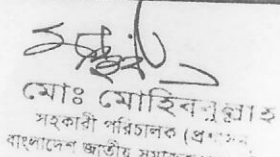 মোঃ মোহিবুল্লাহ
সহকারী পরিচালক (প্রশাসন
বাংলাদেশ জাতীয় সমাজকল্যাণ